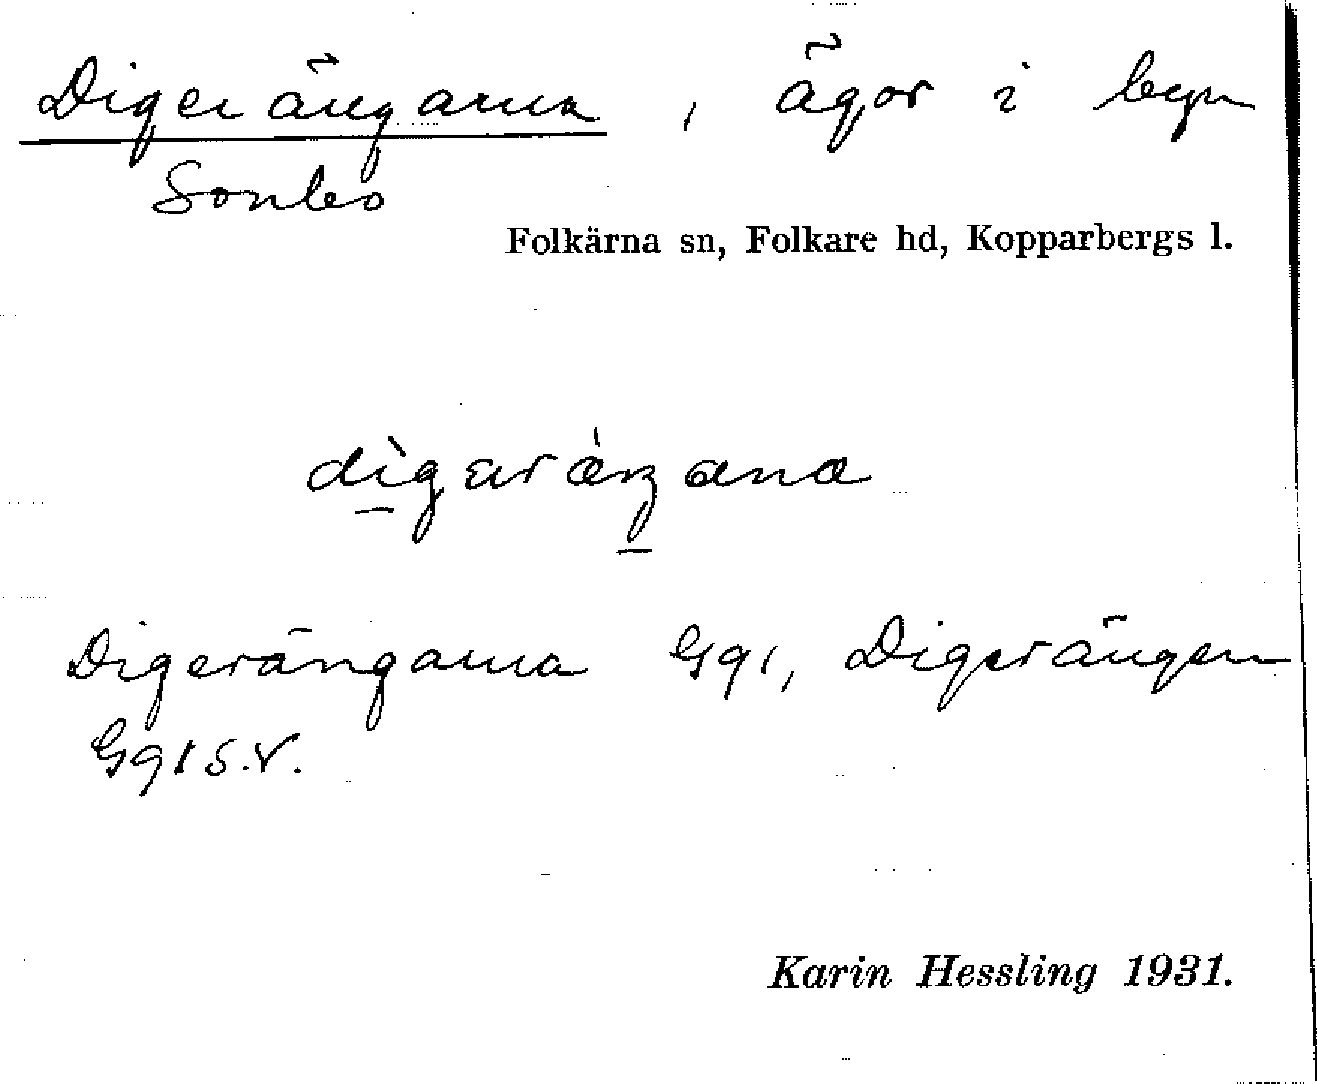 Digerängarna, ägor i byn
Sonbo
Folkärna sn, Folkare hd, Kopparbergs l.
dìgəräŋana
Digerängarna Gg1, Digerängen
Gg1 s.v.
Karin Hessling 1931.